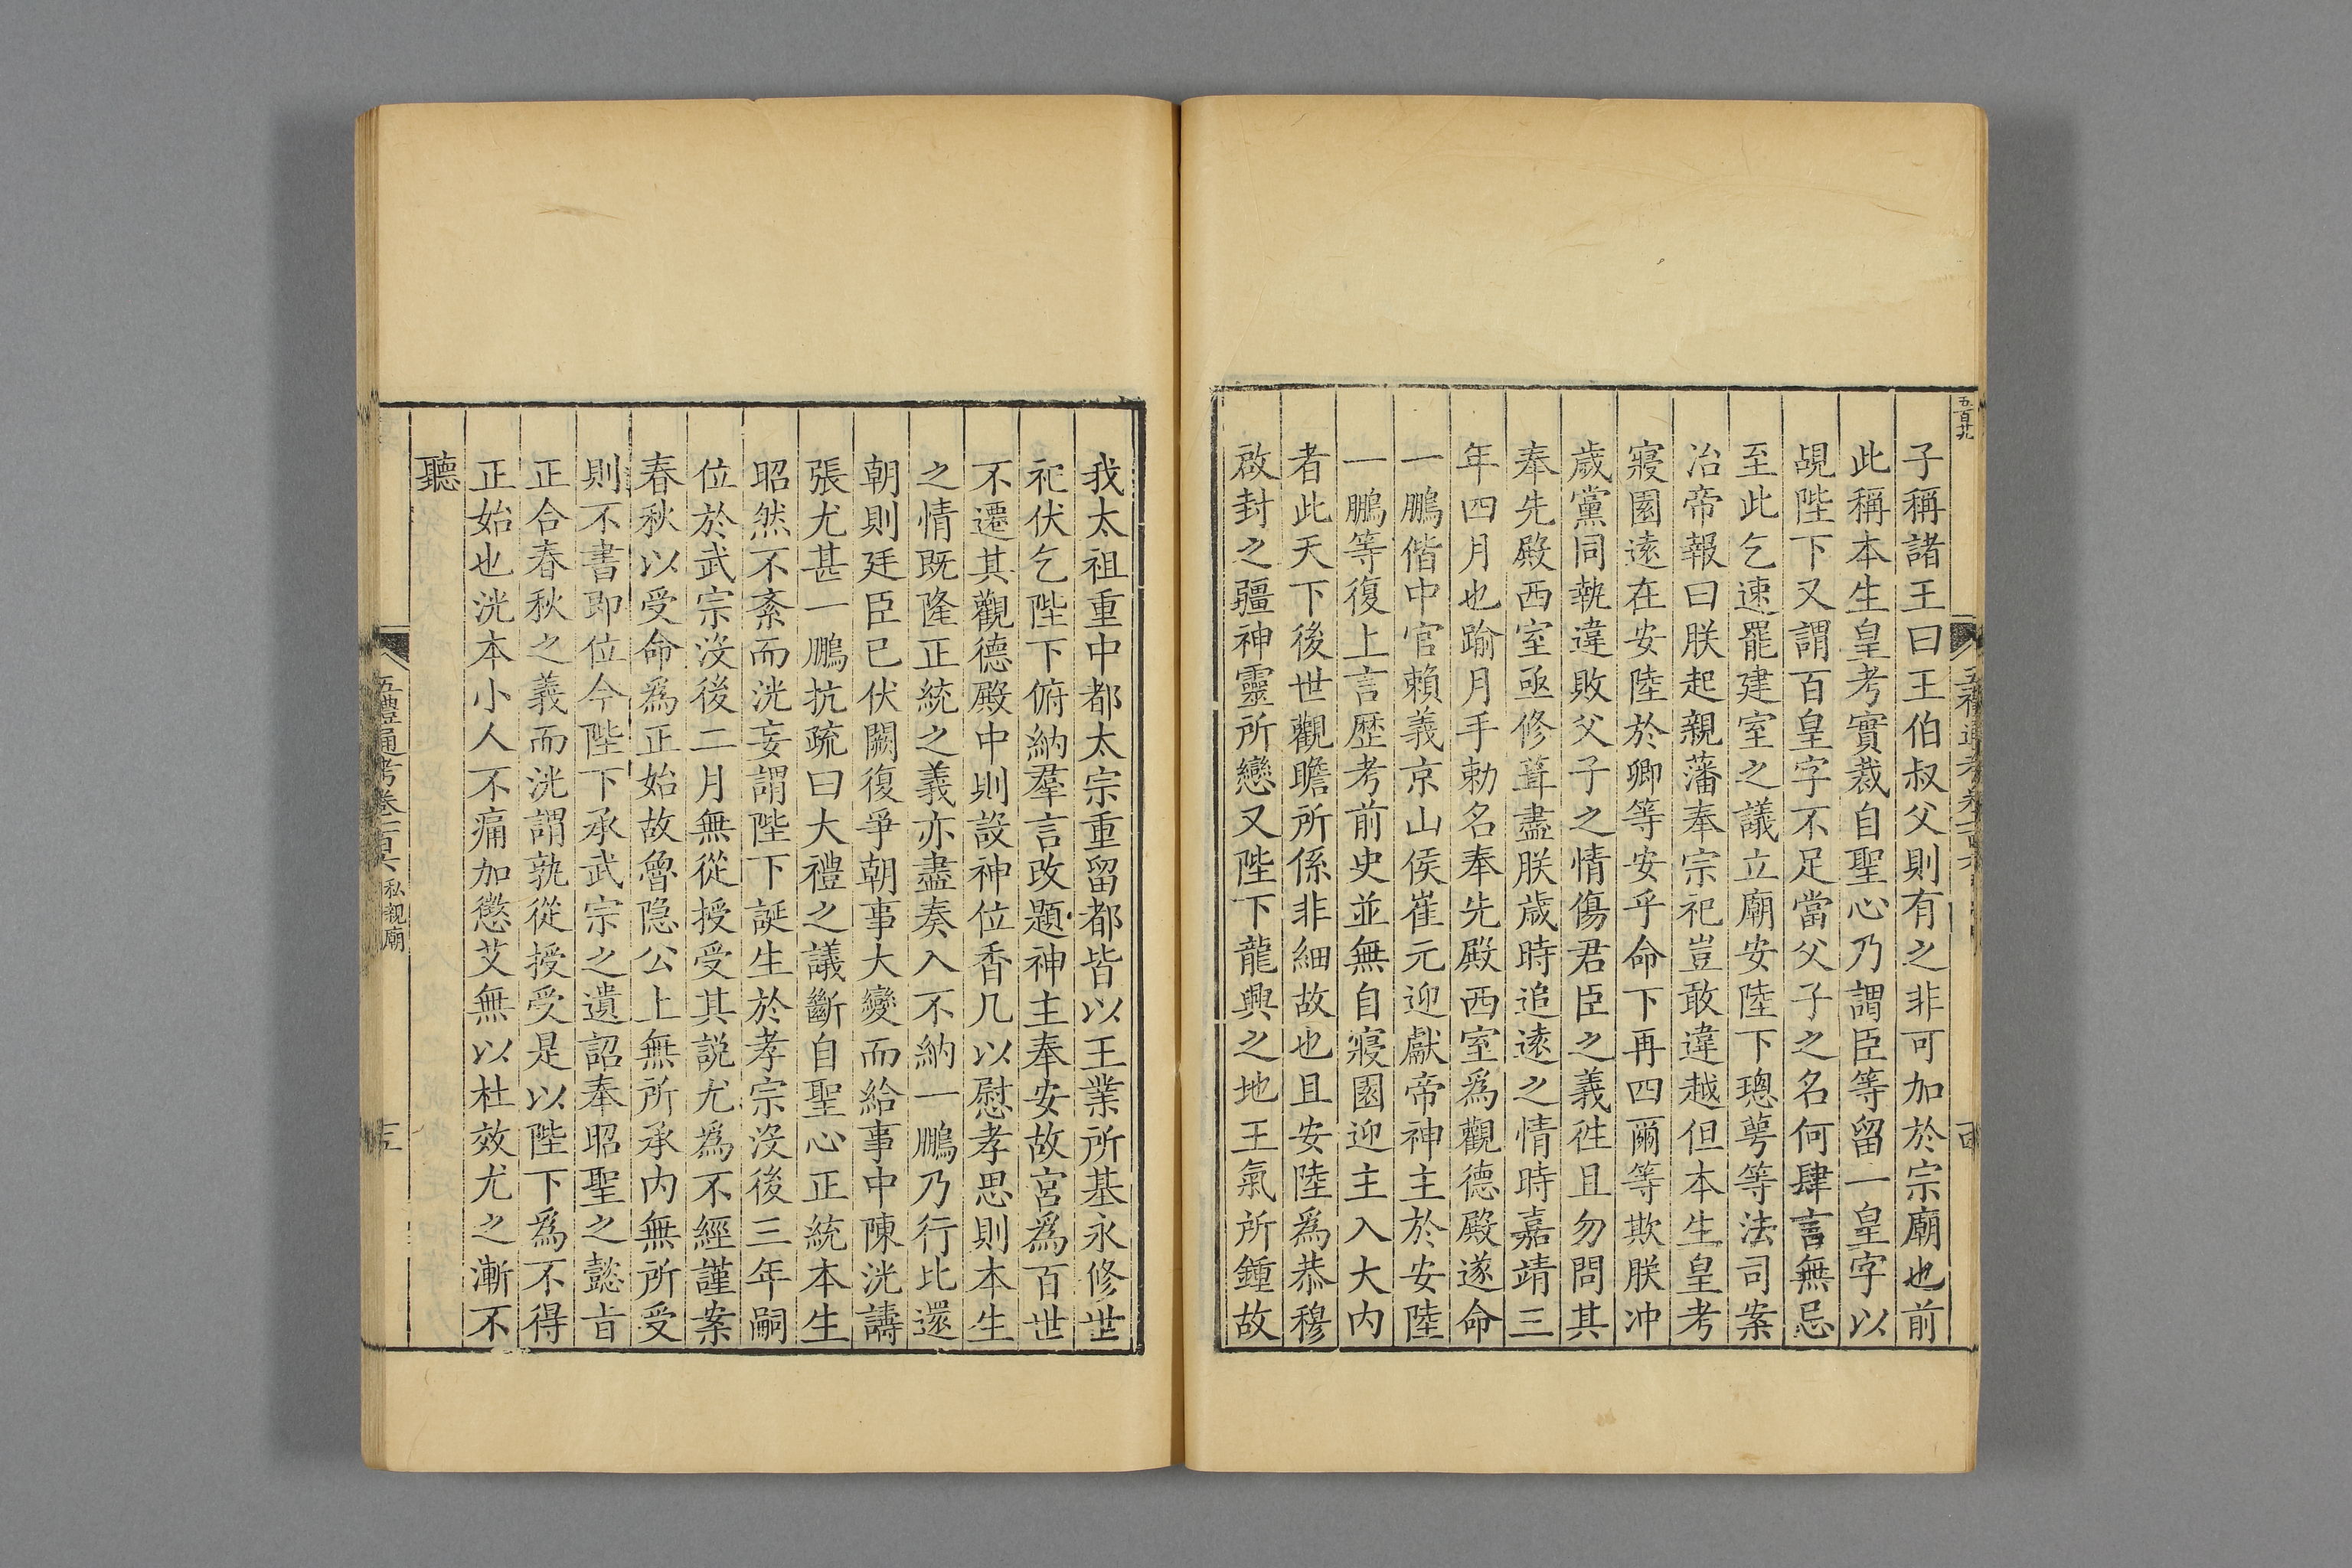 五百九
子稱諸王曰王伯叔父則有之非可加於宗廟也前
此稱本生皇考實裁自聖心乃謂臣等留一皇字以
覘陛下又謂百皇字不足當父子之名何肆言無忌
至此乞速罷建室之議立廟安陸下璁萼等法司案
治帝報曰朕起親藩奉宗祀豈敢違越但本生皇考
寢園遠在安陸於卿等安乎命下再四爾等欺朕冲
歲黨同執違敗父子之情傷君臣之義徃且勿問其
奉先殿西室亟修葺盡朕歲時追遠之情時嘉靖三
年四月也踰月手勅名奉先殿西室爲觀德殿遂命
一鵬偕中官賴義京山侯崔元迎獻帝神主於安陸
一鵬等復上言歴考前史並無自寢園迎主入大内
者此天下後世觀瞻所係非細故也且安陸爲恭穆
啟封之疆神靈所戀又陛下龍興之地王氣所鍾故
我太祖重中都太宗重留都皆以王業所基永修世
祀伏乞陛下俯納羣言改題神主奉安故宮爲百世
不遷其觀德殿中則設神位香几以慰孝思則本生
之情既隆正統之義亦盡奏入不納一鵬乃行比還
朝則廷臣已伏闕復爭朝事大變而給事中陳洸譸
張尤甚一鵬抗疏曰大禮之議斷自聖心正統本生
昭然不紊而洸妄謂陛下誕生於孝宗沒後三年嗣
位於武宗沒後二月無從授受其説尤爲不經謹案
春秋以受命爲正始故魯隐公上無所承内無所受
則不書即位今陛下承武宗之遺詔奉昭聖之懿旨
正合春秋之義而洸謂孰從授受是以陛下爲不得
正始也洸本小人不痛加懲艾無以杜效尤之漸不
聽
五禮通考卷一百六 私親廟 十五